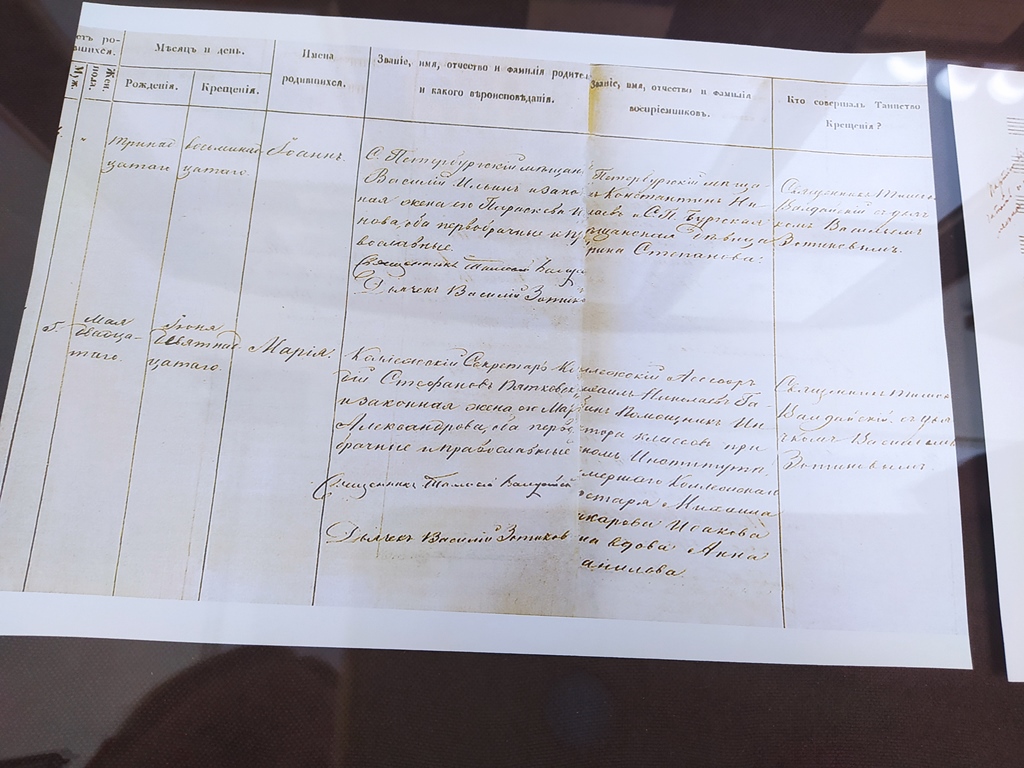 Мѣсяцъ и день.
Рожденія.
Крещенія.
Муж.
Жен.
пола.
Имена
родившихся.
Званіе, имя, отчество и фамилія родител
и какого вѣроисповѣданія.
Званіе, имя, отчество и фамилія
воспріемниковъ.
Кто совершалъ Таинство
Крещенія?
тринад
цатаго
восьмнад
цатаго.
Іоаннъ.
С. Петербургскій мѣщан
Василій Ильинъ и зако
ная жена его Параскева И
нова, оба первобрачные и пр
вославные.
Священникъ
Дьячекъ Василій Зотик
Петербургскій мѣща
Константинъ Ни
и С.П. Бургская
щанская дѣвица
Степанова.
Священникъ
Валдайскій съ дьяч
комъ Василіемъ
Зотиковымъ.
Мая
двадца-
таго.
Іюня
девятнад
цатаго.
Марія.
Коллежскій Секретарь
Стефановъ Вятковск
и законная жена его Мар
Александрова, оба перво
брачные и православные
Священникъ
Дьячекъ Василій Зотиков
лежскій Ассесоръ
Николаевъ Ба-
Помощникъ Ин
тора классовъ при
комъ Института
мершаго Коллежскаго
таря Михаила
карова Исакова
на вдова Анна
анилова.
Священникъ
Валдайскій съ дья
чкомъ Василіемъ
Зотиковымъ.